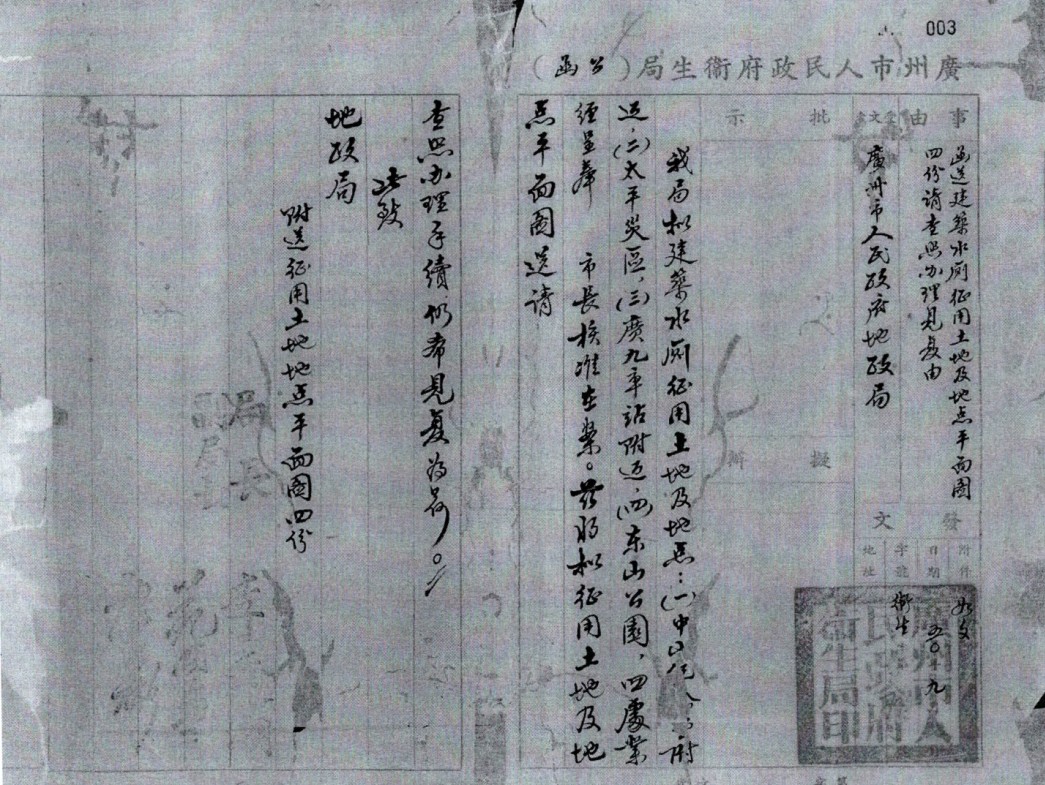 003
廣州市人民政府衞生局（公函）
事由
函送建築水厠征用土地及地点平面圖
四份請查照办理見复由
受文者
廣州市人民政府地政局
批示
擬辦
發文
附件
如文
日期
五〇 九
字號
衞生
地址
廣州市人民政府衞生局印
我局拟建築水厠征用土地及地点：(一)中山紀念
近，(二)太平災區，(三)廣九車站附近，(四)东山公園，四處業
經呈奉　市長核准在案。茲将拟征用土地及地
点平面圖送請
查照办理手續仍希見复为荷。
此致
地政局
附送征用土地地点平面圖四份
局長
副局長